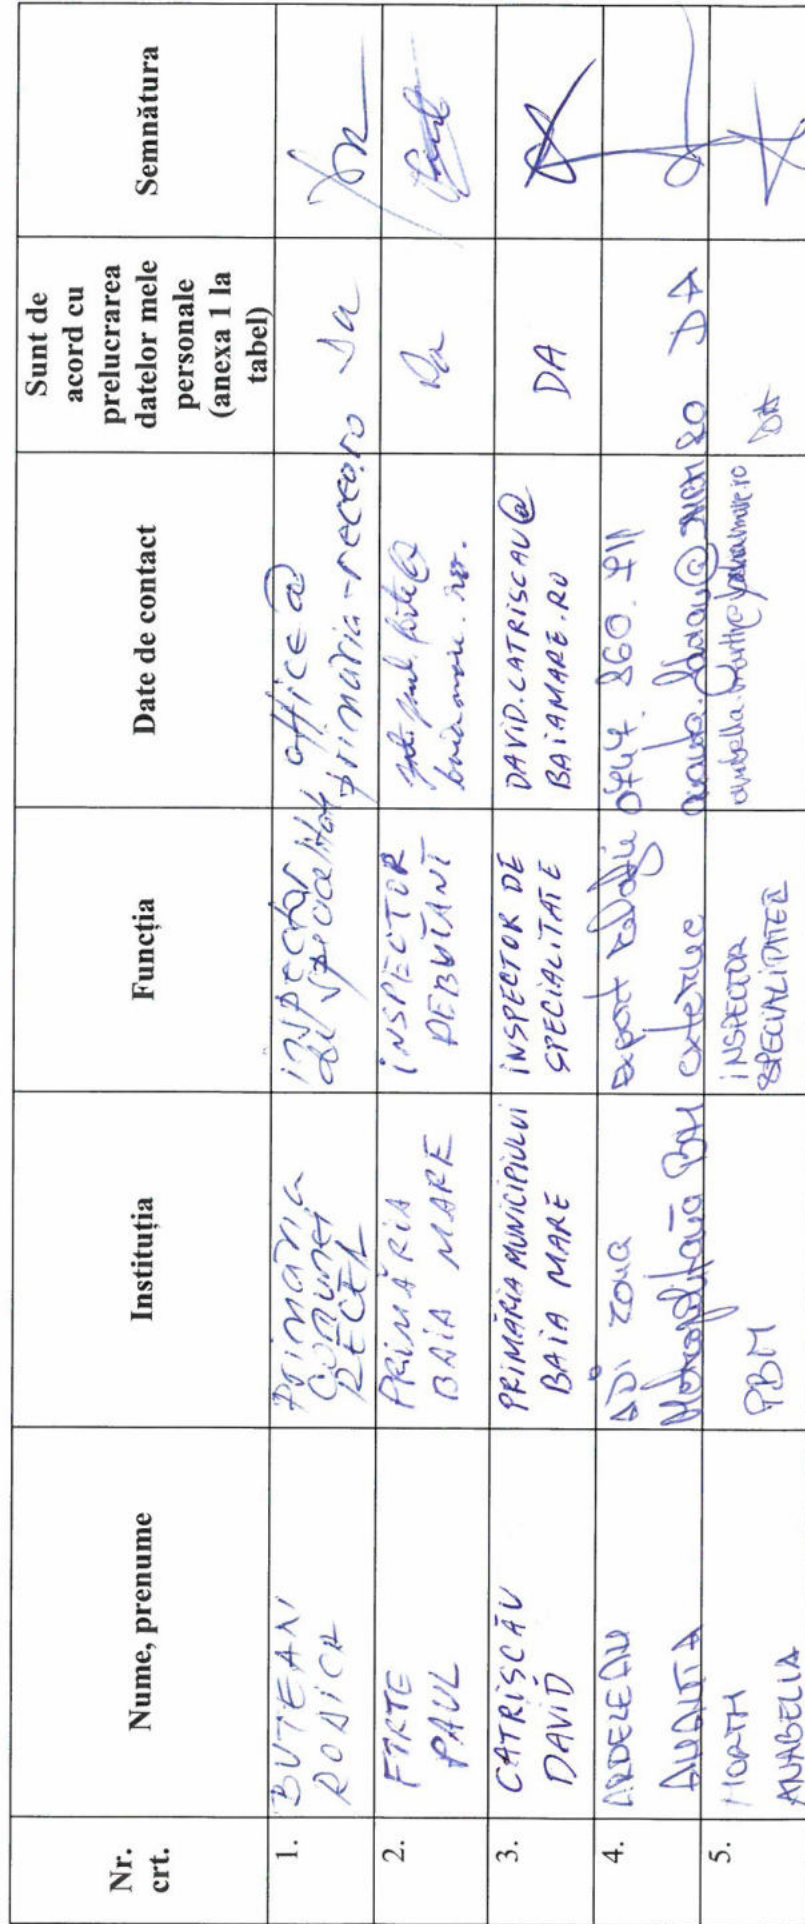 Nr.
crt.
Nume, prenume
Instituția
Funcția
Date de contact
Sunt de
acord cu
prelucrarea
datelor mele
personale
(anexa 1 la
tabel)
Semnătura
1.
BUTEAN
RODICA
Primăria
comunei
RECEA
inspector
de specialitate
office@
primaria-recea.ro
Da
2.
FIRTE
PAUL
PRIMĂRIA
BAIA MARE
INSPECTOR
DEBUTANT
Da
3.
CATRISCĂU
DAVID
PRIMĂRIA MUNICIPIULUI
BAIA MARE
INSPECTOR DE
SPECIALITATE
DAVID.CATRISCAU@
BAIAMARE.RO
DA
4.
ARDELEAN
ADI ZONA
Metropolitană BM
expert relații
externe
DA
5.
ANABELLA
PBM
INSPECTOR
DA